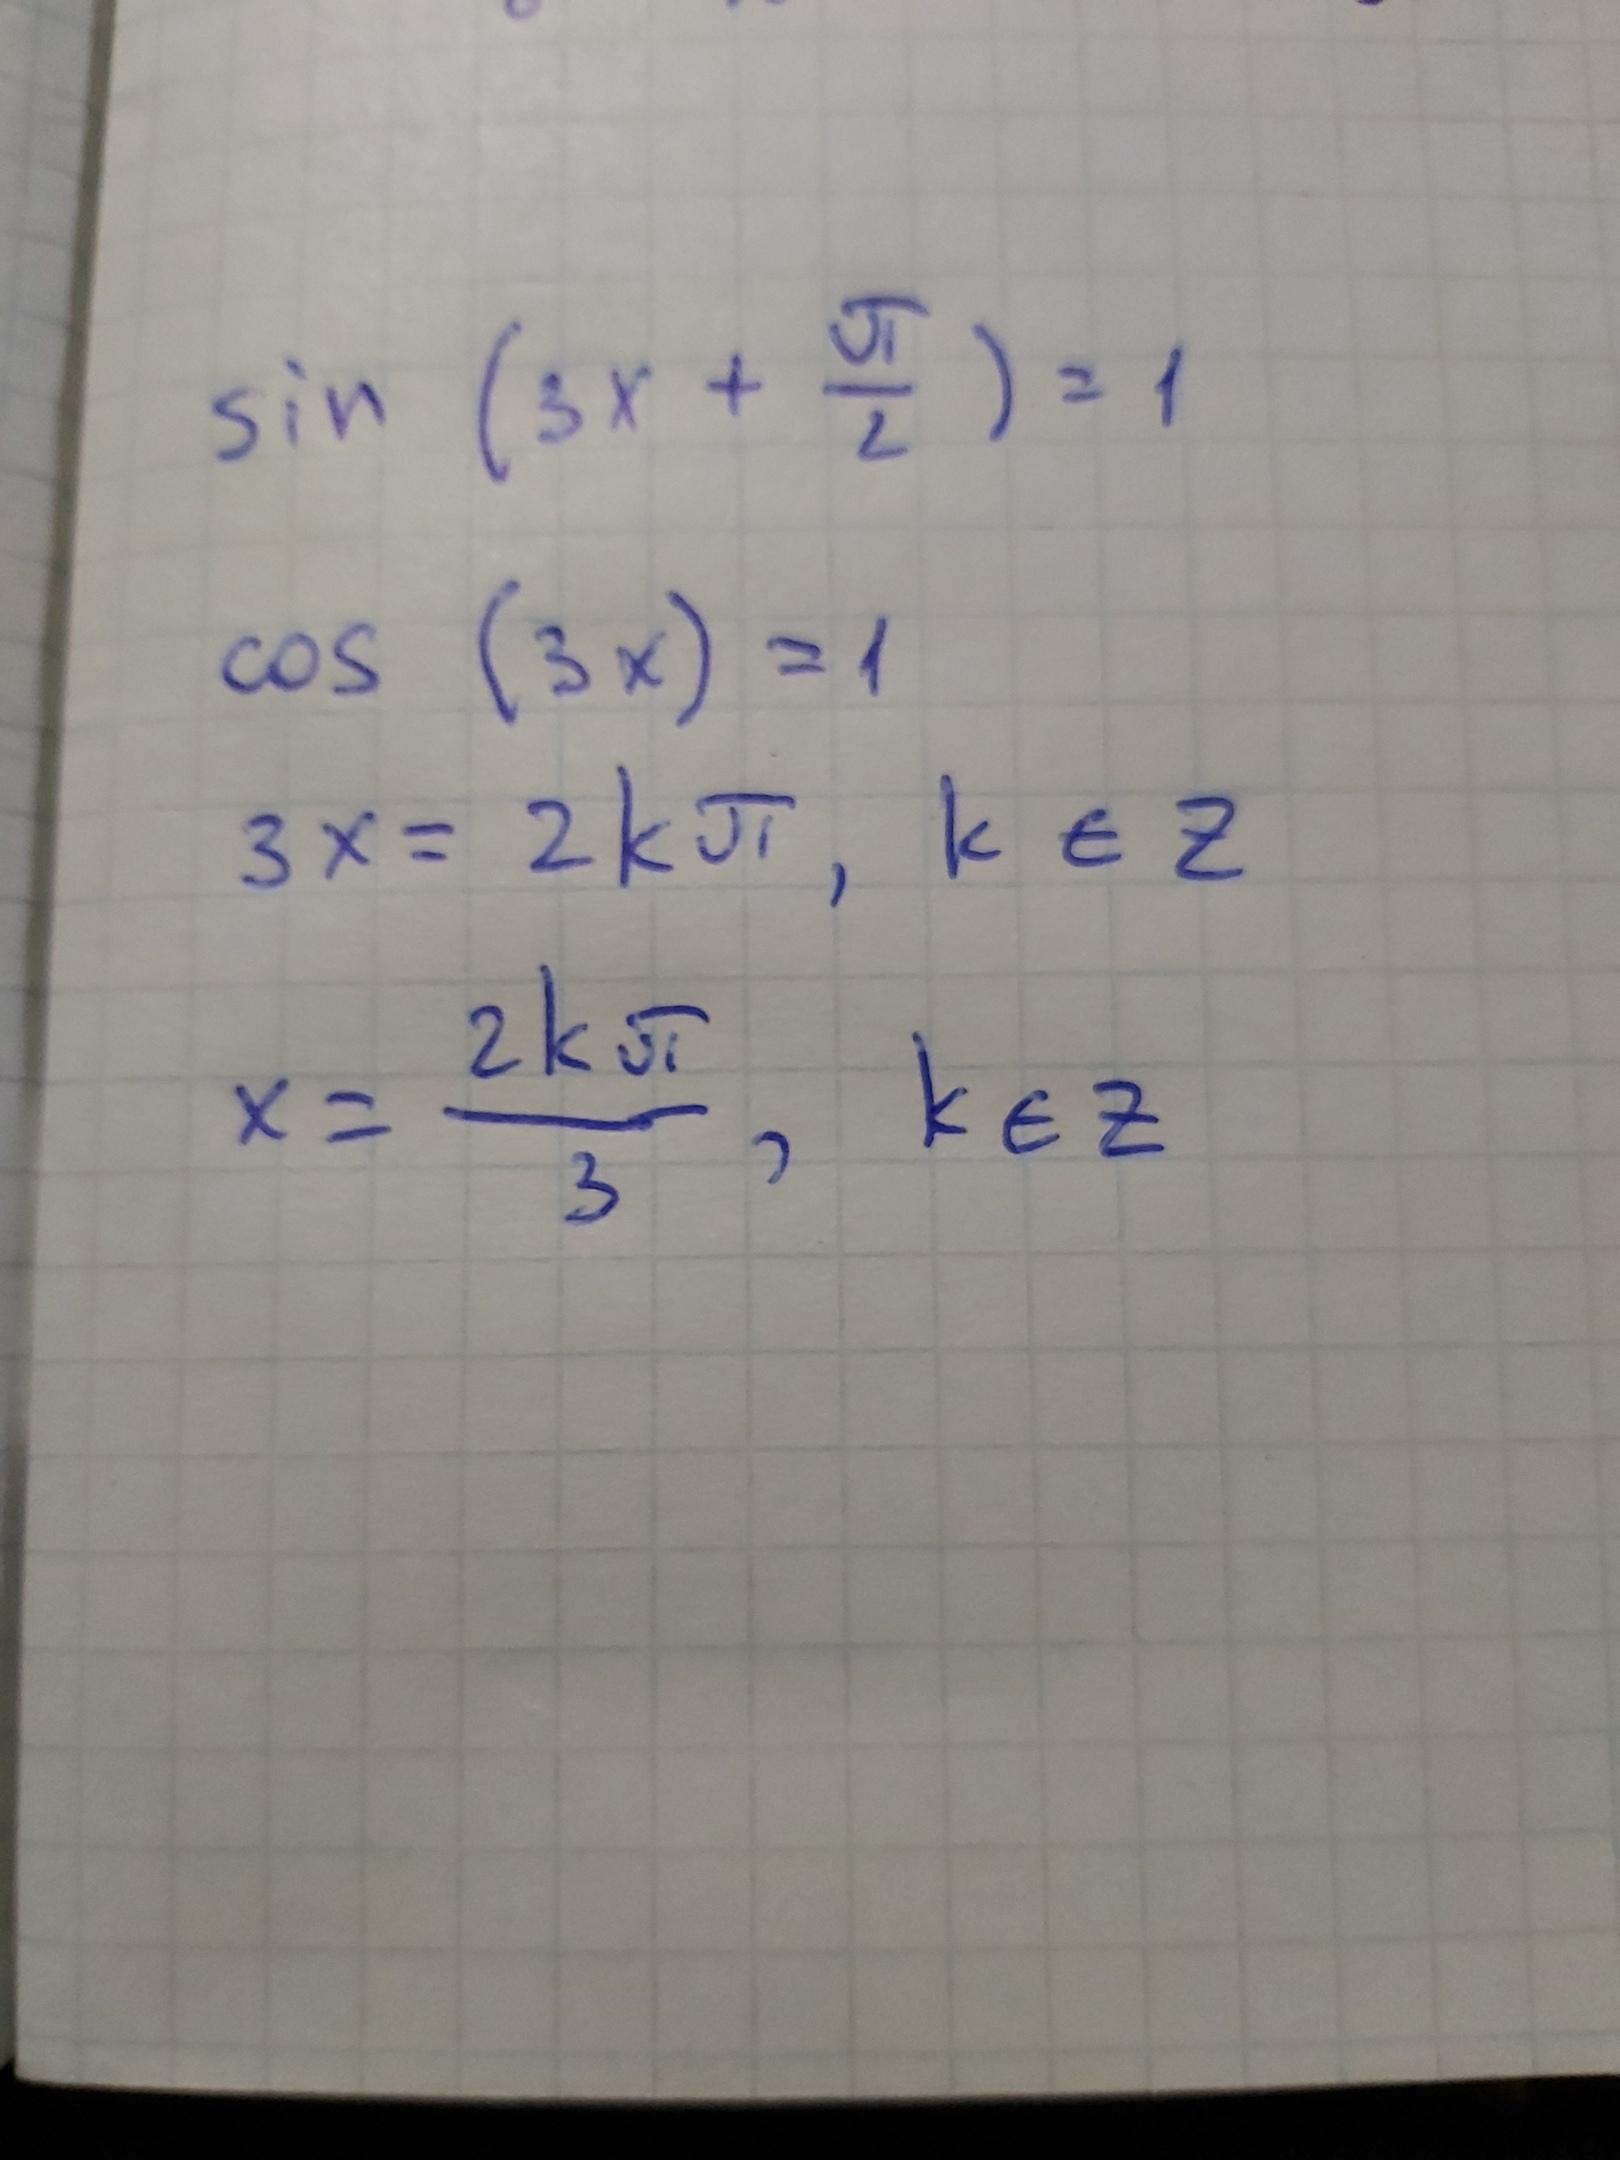 sin (3x + π/2) = 1
cos (3x) = 1
3x = 2kπ, k ∈ Z
x = 2kπ/3, k ∈ Z